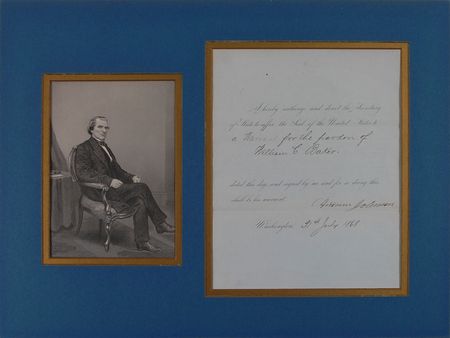 I hereby authorize and direct the Secretary
of State to affix the Seal of the United States to
a Warrant for the pardon of
William C.
dated this day, and signed by me and for so doing this
shall be his warrant.
Andrew Johnson
Washington 31st July 1865